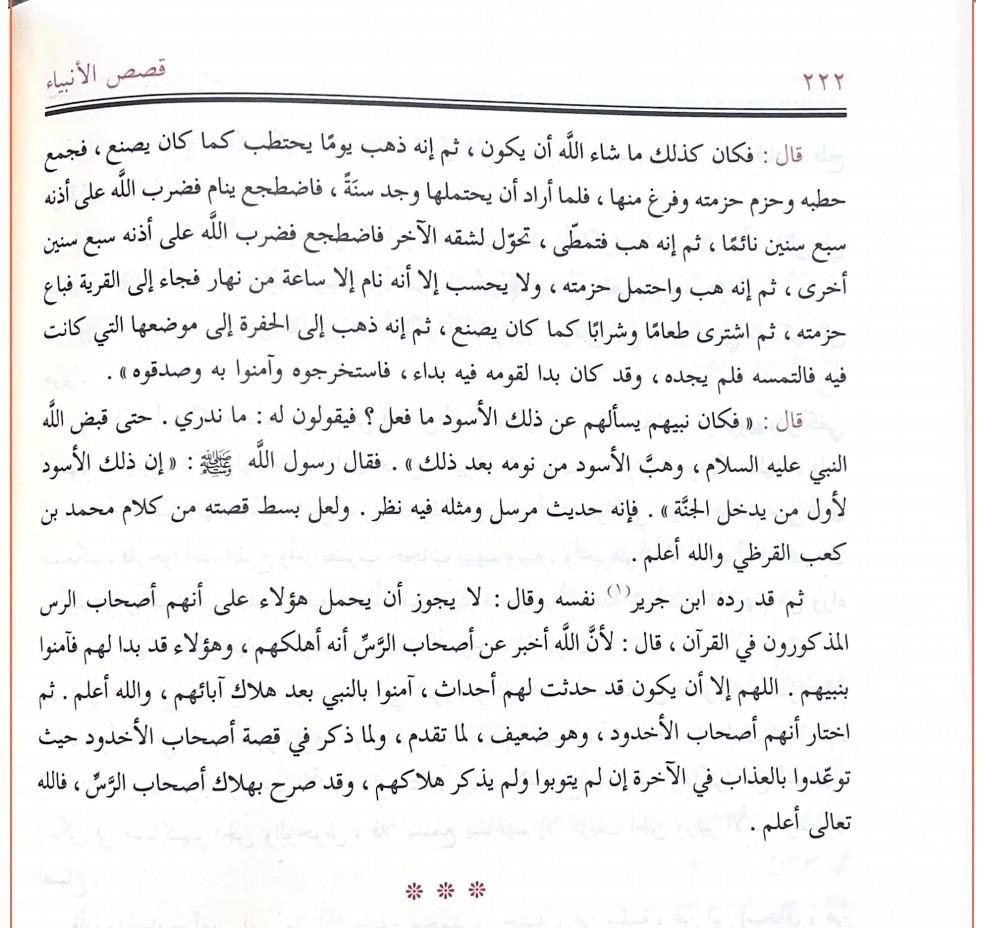 ٢٢٢ قصص الأنبياء
قال : فكان كذلك ما شاء اللَّه أن يكون ، ثم إنه ذهب يومًا يحتطب كما كان يصنع ، فجمع
حطبه وحزم حزمته وفرغ منها ، فلما أراد أن يحتملها وجد سنَةً ، فاضطجع ينام فضرب اللَّه على أذنه
سبع سنين نائمًا ، ثم إنه هب فتمطّى ، تحوّل لشقه الآخر فاضطجع فضرب اللَّه على أذنه سبع سنين
أخرى ، ثم إنه هب واحتمل حزمته ، ولا يحسب إلا أنه نام إلا ساعة من نهار فجاء إلى القرية فباع
حزمته ، ثم اشترى طعامًا وشرابًا كما كان يصنع ، ثم إنه ذهب إلى الحفرة إلى موضعها التي كانت
فيه فالتمسه فلم يجده ، وقد كان بدا لقومه فيه بداء ، فاستخرجوه وآمنوا به وصدقوه » .
قال : « فكان نبيهم يسألهم عن ذلك الأسود ما فعل ؟ فيقولون له : ما ندري . حتى قبض اللَّه
النبي عليه السلام ، وهبَّ الأسود من نومه بعد ذلك » . فقال رسول اللَّه ﷺ : « إن ذلك الأسود
لأول من يدخل الجنَّة » . فإنه حديث مرسل ومثله فيه نظر . ولعل بسط قصته من كلام محمد بن
كعب القرظي والله أعلم .
ثم قد رده ابن جرير(١) نفسه وقال : لا يجوز أن يحمل هؤلاء على أنهم أصحاب الرس
المذكورون في القرآن ، قال : لأنَّ اللَّه أخبر عن أصحاب الرَّسِّ أنه أهلكهم ، وهؤلاء قد بدا لهم فآمنوا
بنبيهم . اللهم إلا أن يكون قد حدثت لهم أحداث ، آمنوا بالنبي بعد هلاك آبائهم ، والله أعلم . ثم
اختار أنهم أصحاب الأخدود ، وهو ضعيف ، لما تقدم ، ولما ذكر في قصة أصحاب الأخدود حيث
توعّدوا بالعذاب في الآخرة إن لم يتوبوا ولم يذكر هلاكهم ، وقد صرح بهلاك أصحاب الرَّسِّ ، فالله
تعالى أعلم .